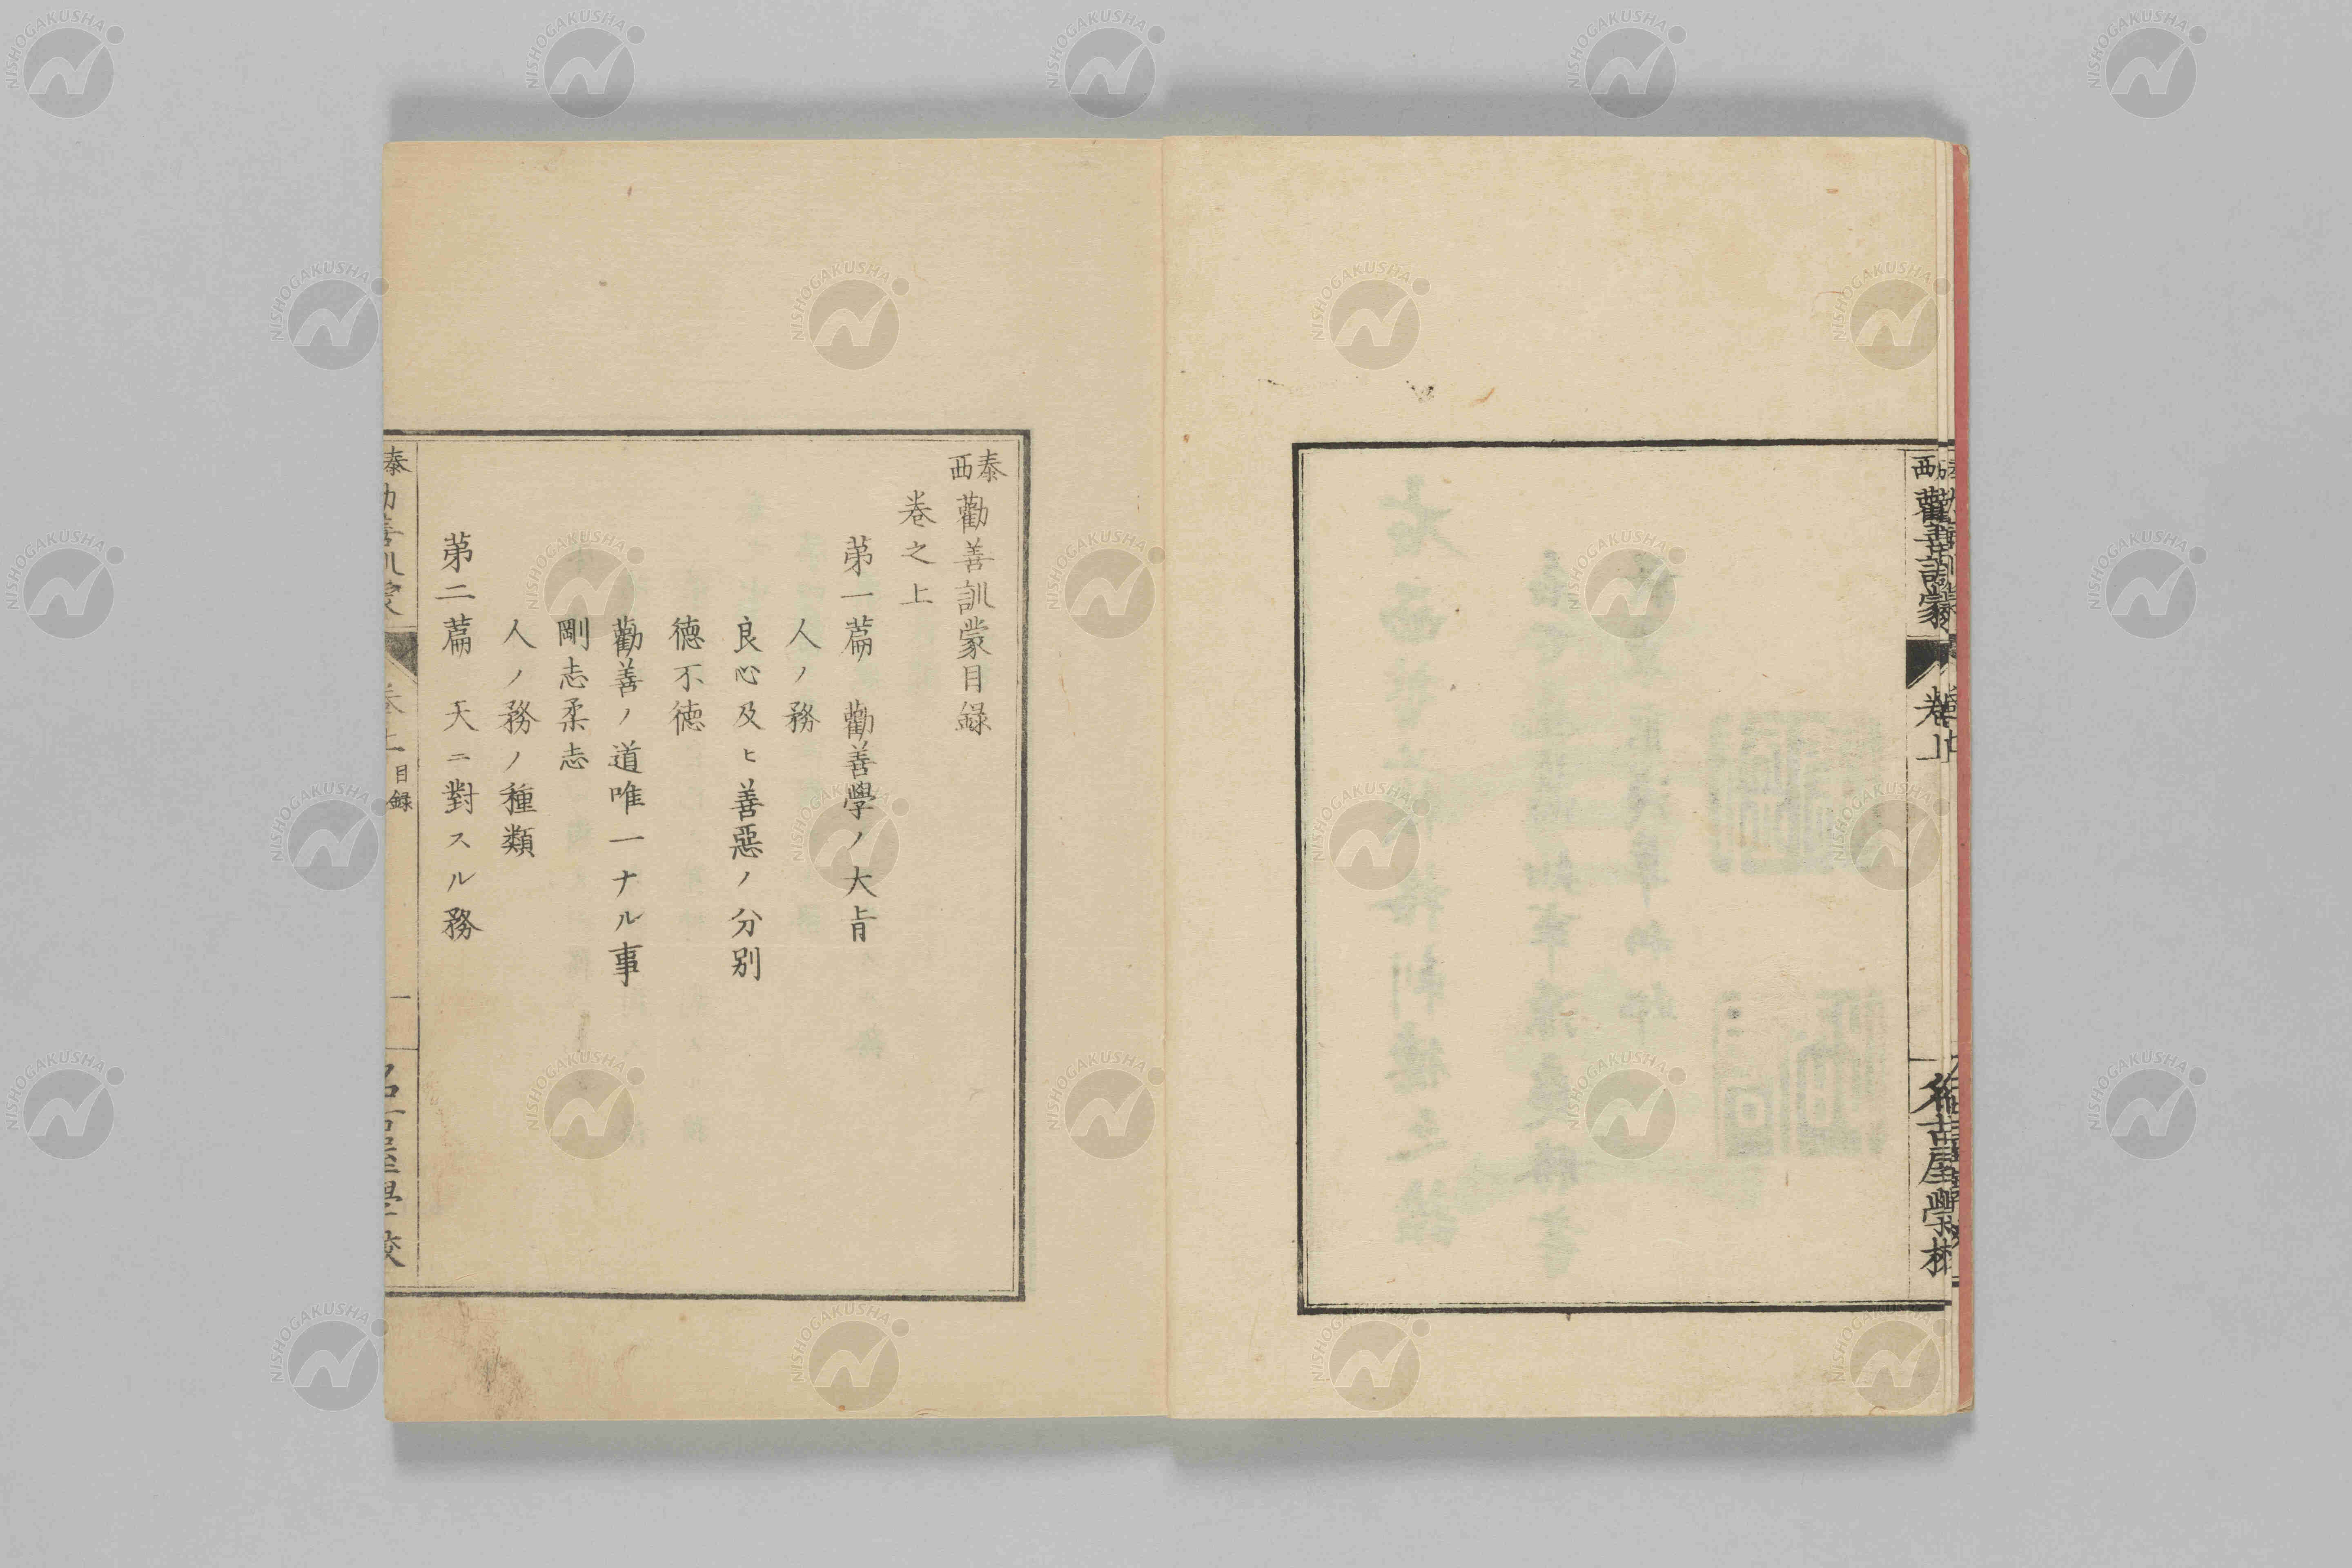 西勸善訓蒙
卷上
名古屋學校
泰西勸善訓蒙目録
巻之上
第一篇 勸善學ノ大旨
人ノ務
良心及ヒ善惡ノ分別
徳不徳
勸善ノ道唯一ナル事
剛志柔志
人ノ務ノ種類
第二篇 天ニ對スル務
泰
目録
一
NISHOGAKUSHA